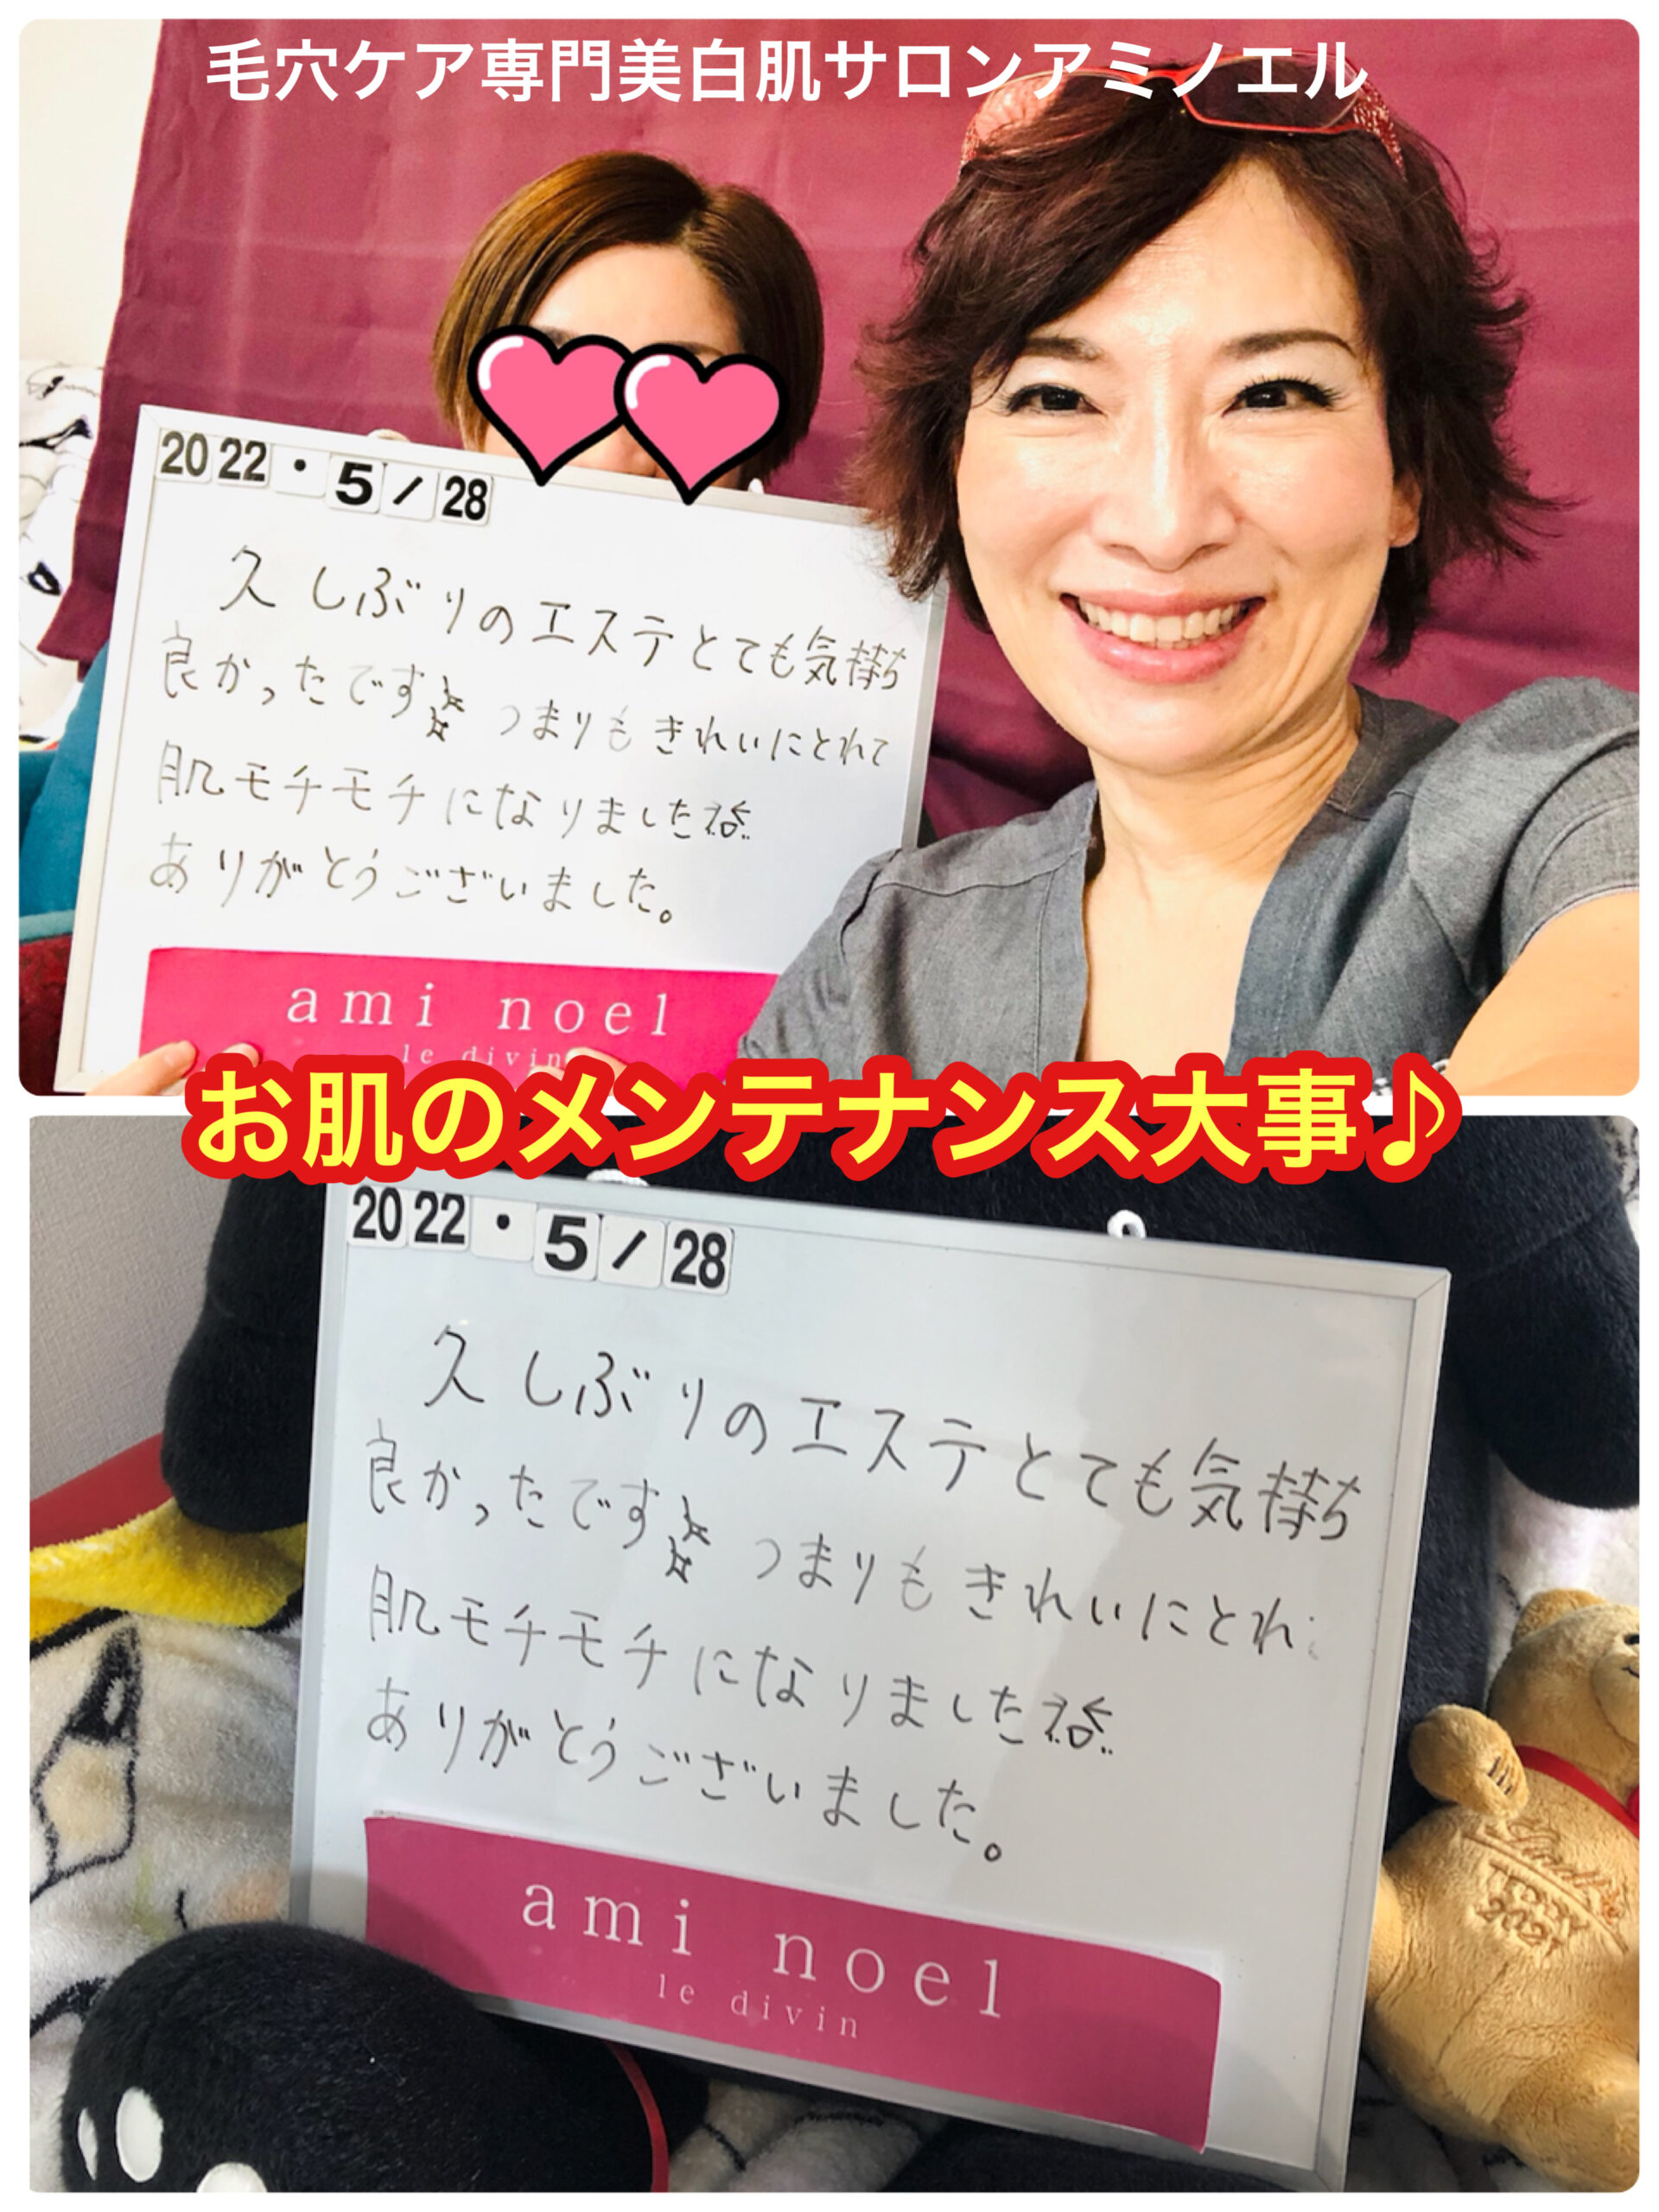 毛穴ケア専門美白肌サロンアミノエル
2022・5/28
久しぶりのエステとても気持ち
良かったです つまりもきれいにとれて
肌モチモチになりました
ありがとうございました。
ami noel
le divin
お肌のメンテナンス大事♪
2022・5/28
久しぶりのエステとても気持ち
良かったです つまりもきれいにとれ
肌モチモチになりました
ありがとうございました。
ami noel
le divin
Lindt
TEDDY
2021